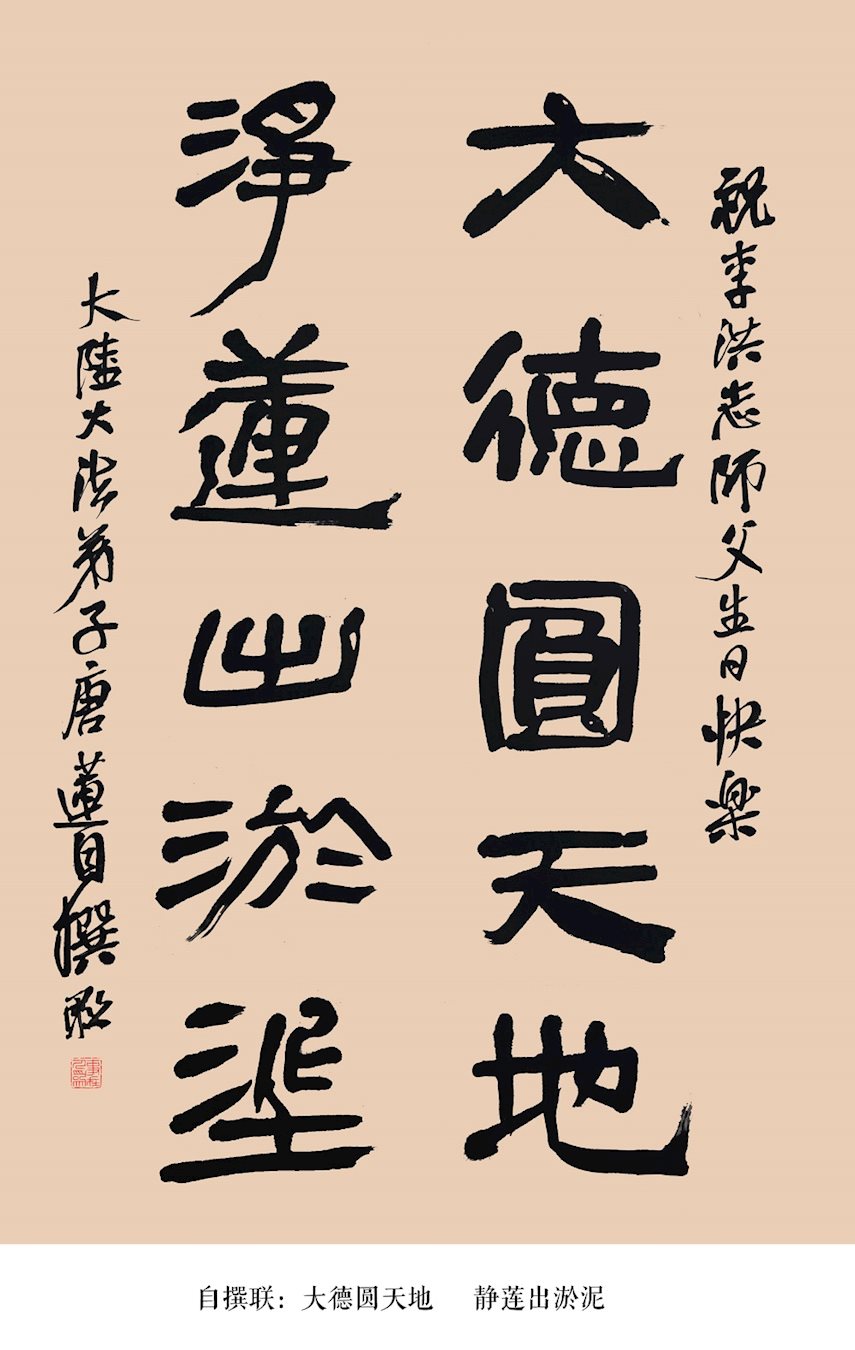 祝李洪志师父生日快樂
大德圓天地
淨蓮出淤埿
大陸大法弟子唐蓮自撰联
自撰联：大德圆天地　静莲出淤泥